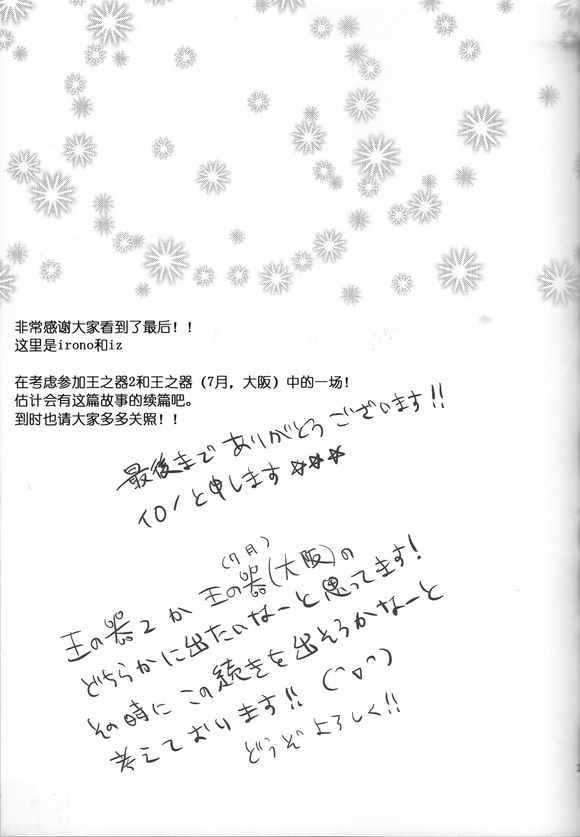 非常感谢大家看到了最后！！
这里是irono和iz
在考虑参加王之器2和王之器（7月，大阪）中的一场！
估计会有这篇故事的续篇吧。
到时也请大家多多关照！！
最後まで ありがとうございます!!
イロノと申します☆☆☆
(7月)
王の器2か 王の器(大阪)の
どちらかに出たいなーと思ってます!
その時に この続きを出そうかなーと
考えております!! (^▽^)
どうぞ よろしく!!